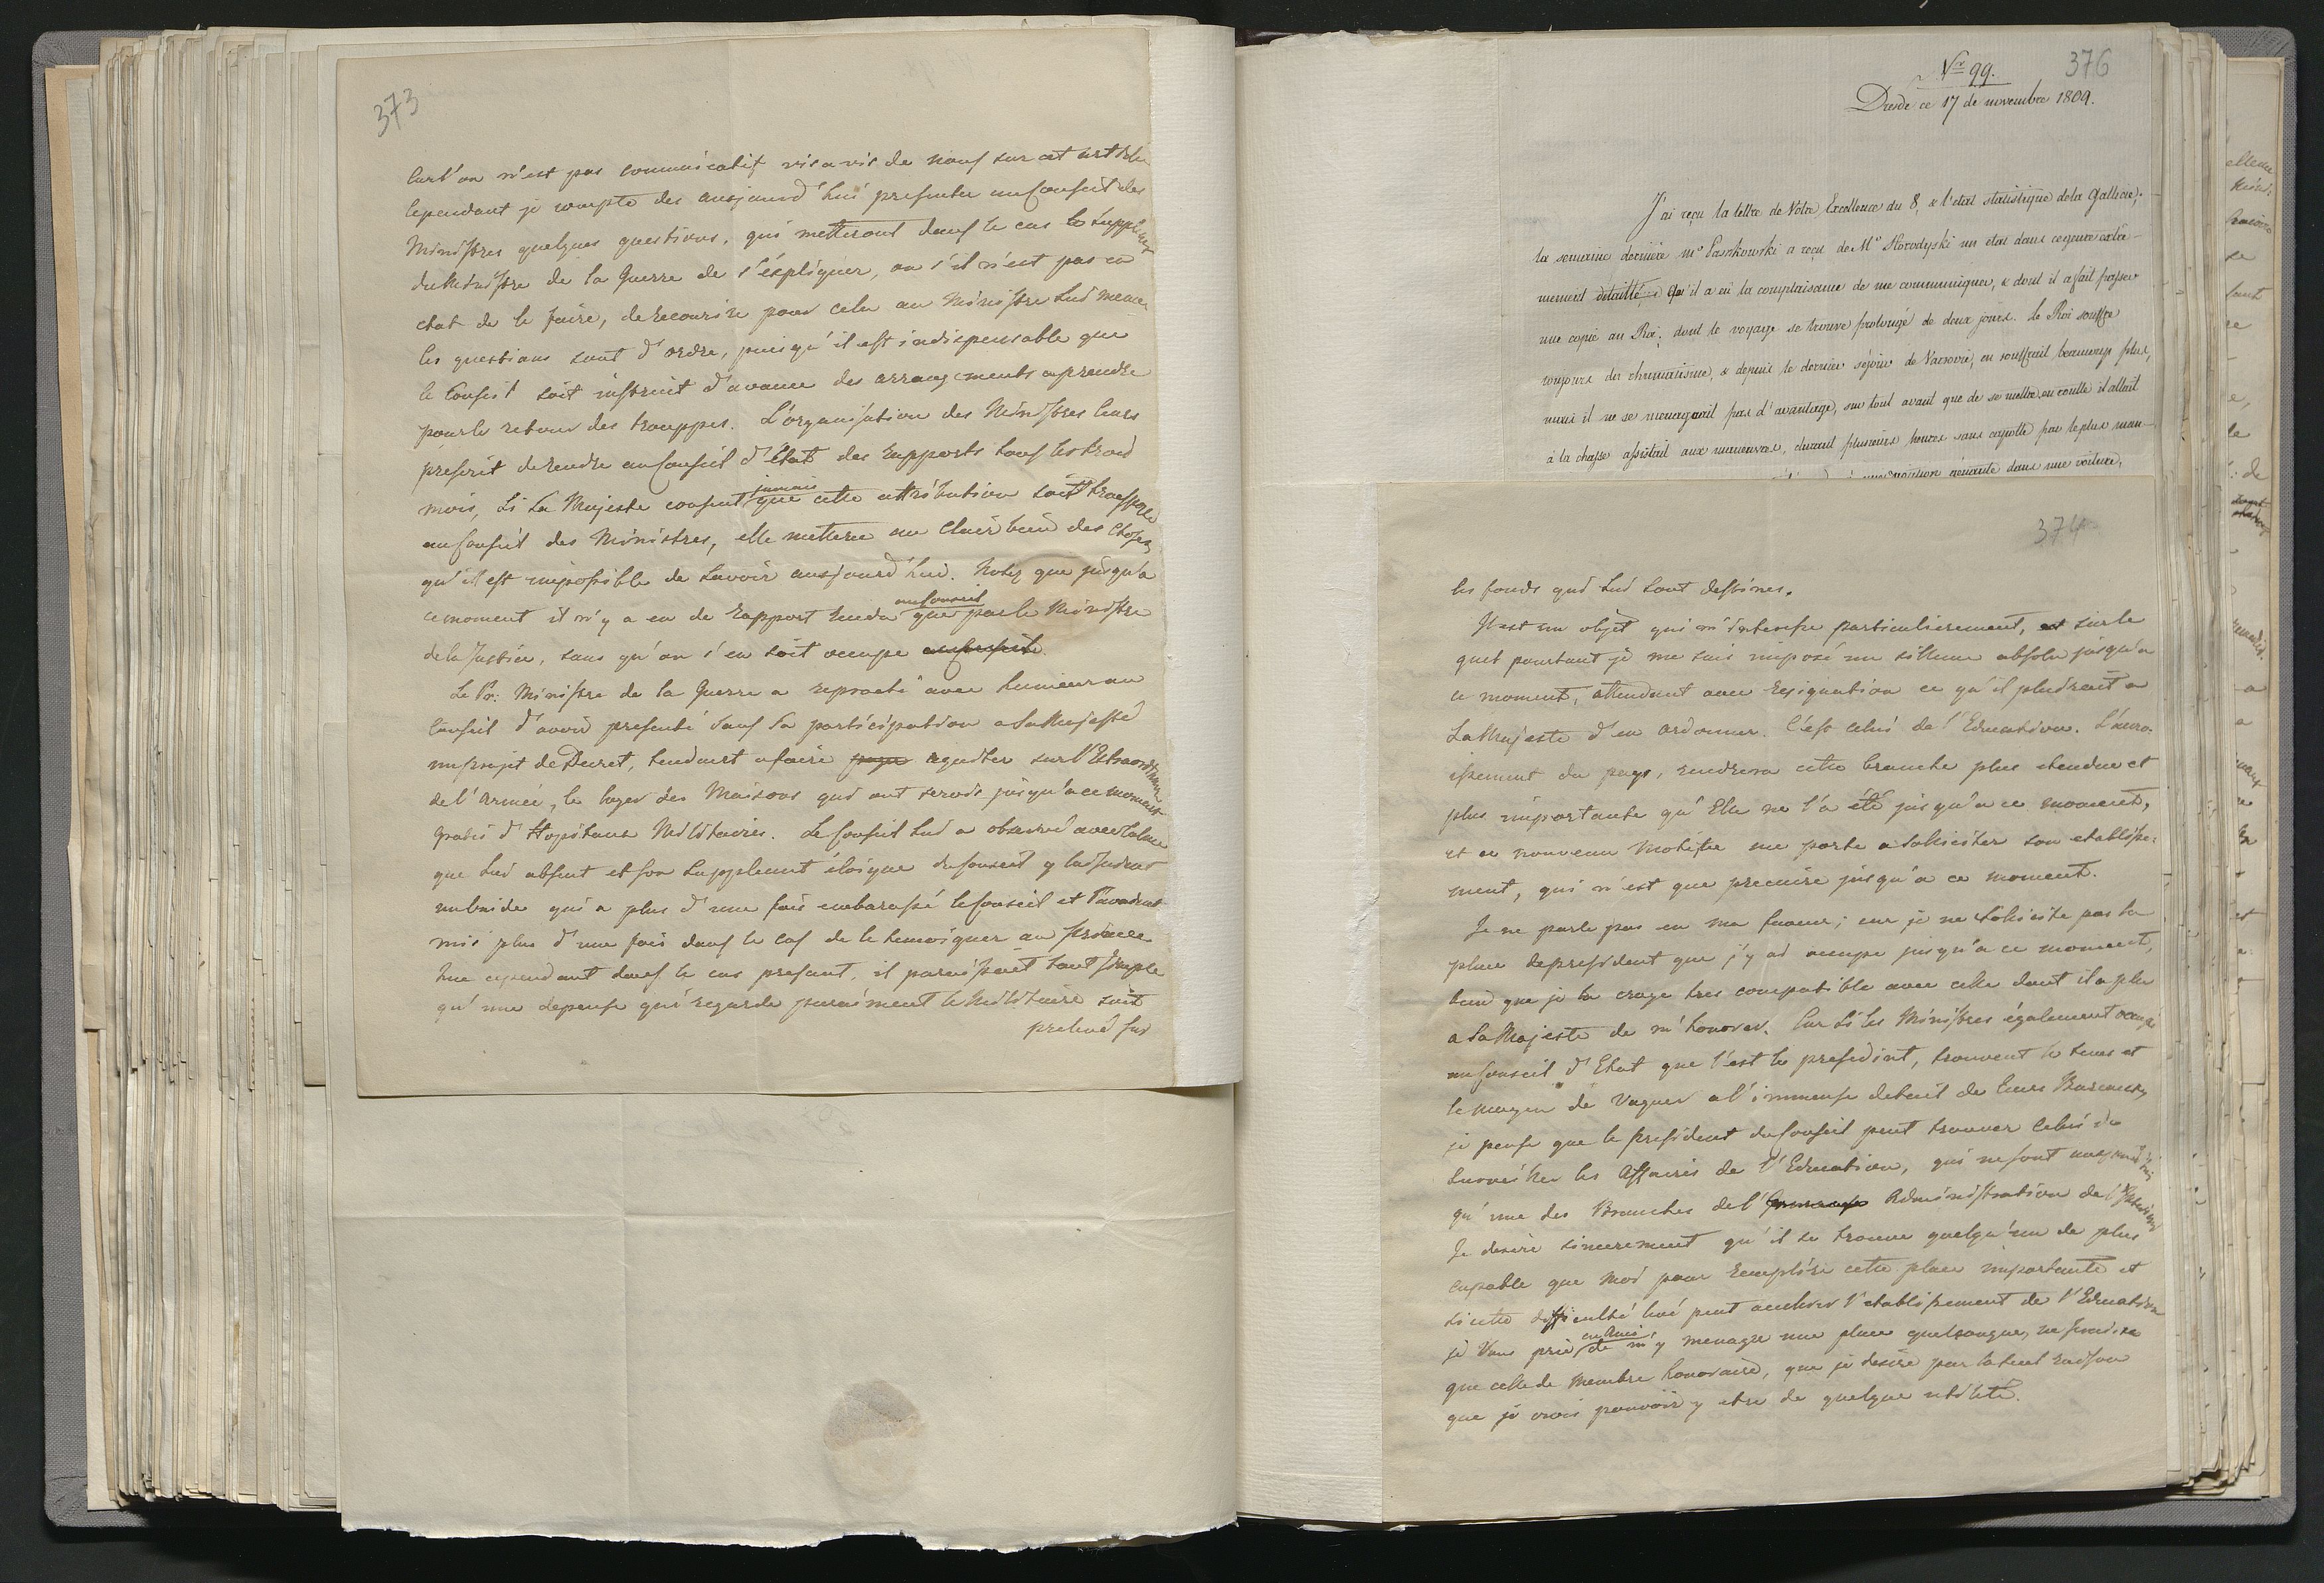 373
Car l'on n'est pas communicatif vis a vis de nous sur cet article
Cependant je compte des aujourd'hui presenter au Conseil des
Ministres quelques questions, qui metteront dans le cas le Suppleant
du Ministre de la Guerre de s'expliquer, ou s'il n'est pas en
etat de le faire, de recourire pour cela au Ministre Lui meme
les questions sont d'ordre, puisqu'il est indispensable que
le Conseil soit instruit d'avance des arrangements a prendre
pour le retour des trouppes. L'organisation des Ministres leurs
prescrit de rendre au Conseil d'État des rapports tous les trois
mois, Si Sa Majeste consent jamais que cette attribution soit transporté
au Conseil des Ministres, elle mettera au Clair bien des Choses
qu'il est impossible de savoir aujourd'hui. Notez que jusqu'a
ce moment il n'y a eu de Rapport rendu au Conseil que par le Ministre
de la Justice, sans qu'on s'en soit occupe
Le Pr: Ministre de la Guerre a reproché avec humeur au
Conseil d'avoir presenté sans Sa participation a Sa Majesté
un projet de Decret, tendant a faire payer aquiter sur l'Extraordinaire
de l'Armée, le loyer des Maisons qui ont servis jusqu'a ce moment
gratis d'Hopitaux Militaires. Le Conseil Lui a observé avec Calme
que Lui absent et son Suppleant éloigné du Conseil y laissaient
un vuide qui a plus d'une fois embarassé le Conseil et l'avoient
mis plus d'une fois dans le cas de le temoigner au Prince
que cependant dans le cas present, il paraissait tout simple
qu'une depense qui regarde purement le Militaire soit
prelevé sur
Nr 99.
376
Dresde ce 17 de novembre 1809.
J'ai reçu la lettre de Votre Excellence du 8, & l'etat statistique de la Gallicie;
la semaine dernière Mr Paszkowski a reçu de Mr Horodyski un etat dans ce genre extre-
mement detaillé qu'il a eü la complaisance de me communiquer, & dont il a fait passer
une copie au Roi; dont le voyage se trouve prolongé de deux jours. le Roi souffre
toujours du rhumatisme, & depuis le dernier séjour de Varsovie, en souffrait beaucoup plus,
mais il ne se menageait pas d'avantage, sur tout avant que de se mettre en route il allait
à la chasse assistait aux manoeuvres, durant plusieurs heures sans capotte par le plus mau-
dans une voiture,
374
les fonds qui Lui sont destinés.
Il est un objet qui m'interesse particulierement, et sur le
quel pourtant je me suis imposé un sillence absolu jusqu'a
ce moment, attendant avec resignation ce qu'il plairoit a
Sa Majeste d'en ordonner. C'est celui de l'Education. L'accro-
issement du pays, rendra cette branche plus etendue et
plus importante qu'Elle ne l'a été jusqu'a ce moment,
et ce nouveau motife me porte a soliciter son etablisse-
ment, qui n'est que precaire jusqu'a ce moment.
Je ne parle pas en ma faveur; car je ne solicite pas la
place de president que j'y ai occupe jusqu'a ce moment,
bien que je la croye tres compatible avec celle dont il a plu
a Sa Majeste de m'honorer. Car Si les Ministres également occupé
au Conseil d'Etat que l'est le president, trouvent le tems et
le moyen de vaquer a l'immense detail de leurs Bureaux,
je pense que le president du Conseil peut trouver celui de
surveiller les affaires de l'Education, qui ne sont aujourd'hui
qu'une des Branches de l' Administration de l'Interieur
Je desire sincerement qu'il se trouve quelqu'un de plus
capable que moi pour remplire cette place importante et
si cette difficulté levé peut accelerer l'etablissement de l'Education
je Vous prie en Ami, de m'y menager une place quelconque, ne fusse
que celle de Membre honoraire, que je desire par la seul raison
que je crois pouvoir y etre de quelque utilité.